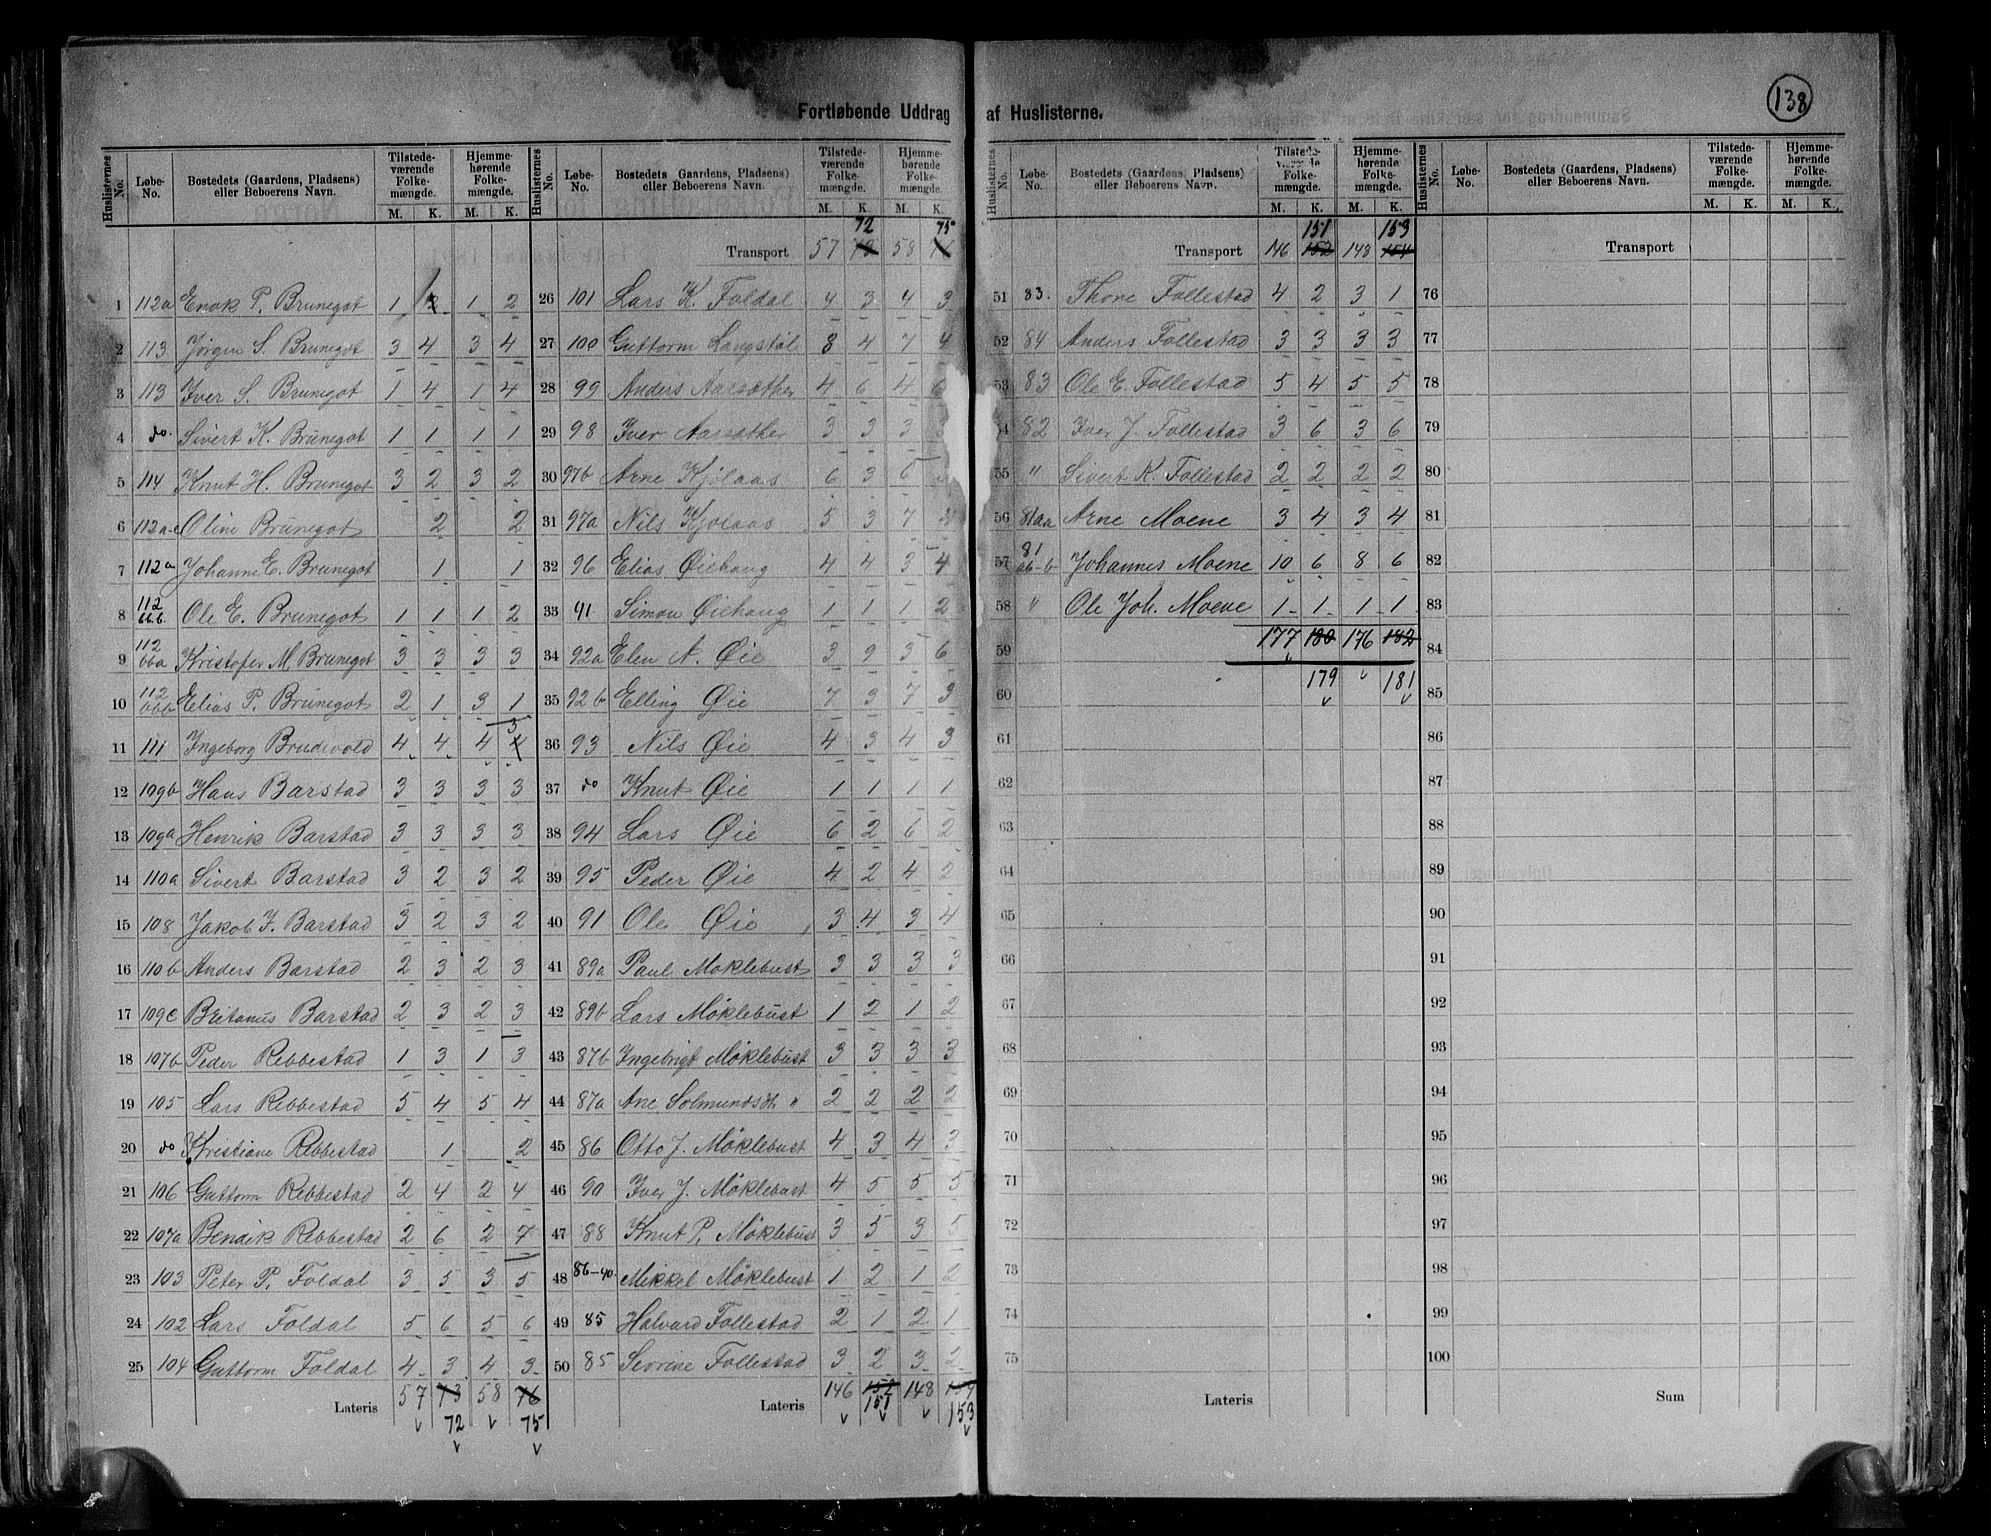 138
Fortløbende Uddrag af Huslisterne.
Huslisternes No. Løbe-No. Bostedets (Gaardens, Pladsens) eller Beboerens Navn. Tilstedeværende Folkemængde. M. K. Hjemmehørende Folkemængde. M. K.
1 112a Enok P. Brunegot 1 1 2
2 113 Jørgen S. Brunegot 3 4 3 4
3 113 Iver S. Brunegot 1 4 1 4
4 do. Sivert K. Brunegot 1 1 1 1
5 114 Knut H. Brunegot 3 2 3 2
6 112a-c Oline Brunegot 2 2
7 112a Johanne E. Brunegot 1 1
8 112 bb.b. Ole E. Brunegot 1 1 1 2
9 112 bba Kristofer M. Brunegot 3 3 3 3
10 112 bbb Elias P. Brunegot 2 1 3 1
11 111 Ingeborg Brudevold 4 4 4 4 3
12 109b Hans Barstad 3 3 3 3
13 109a Henrik Barstad 3 3 3 3
14 110a Sivert Barstad 3 2 3 2
15 108 Jakob J. Barstad 3 2 3 2
16 110b Anders Barstad 2 3 2 3
17 109c Britanus Barstad 2 3 2 3
18 107b Peder Rebbestad 1 3 1 3
19 105 Lars Rebbestad 5 4 5 4
20 do Kristiane Rebbestad 1 2
21 106 Guttorm Rebbestad 2 4 2 4
22 107a Bendik Rebbestad 2 6 2 7
23 103 Peter P. Foldal 3 5 3 5
24 102 Lars Foldal 5 6 5 6
25 104 Guttorm Foldal 4 3 4 3
Lateris 57 73 58 76
72 75
Huslisternes No. Løbe-No. Bostedets Gaardens, Pladsens) eller Beboerens Navn. Tilstedeværende Folkemængde. M. K. Hjemmehørende Folkemængde. M. K.
72 75
Transport 57 73 58 76
26 101 Lars K. Foldal 4 3 4 3
27 100 Guttorm Langstøl 8 4 7 4
28 99 Anders Aarsæther 4 6 4 6
29 98 Iver Aarsæther 3 3 3 3
30 97b Arne Kjølaas 6 3 6
31 97a Nils Kjølaas 5 3 7
32 96 Elias Øiehaug 4 4 3 4
33 91 Simon Øiehaug 1 1 1 2
34 92a Elen A. Øie 3 9 3 6
35 92b Elling Øie 7 3 7 3
36 93 Nils Øie 4 3 4 3
37 do Knut Øie 1 1 1 1
38 94 Lars Øie 6 2 6 2
39 95 Peder Øie 4 2 4 2
40 91 Ole Øie 3 4 3 4
41 89a Paul Møklebust 3 3 3 3
42 89b Lars Møklebust 1 2 1 2
43 87b Ingebrigt Møklebust 3 3 3 3
44 87a Ane Solmundsdt. " 2 2 2 2
45 86 Otto J. Møklebust 4 3 4 3
46 90 Iver J. Møklebust 4 5 5 5
47 88 Knut P. Møklebust 3 5 3 5
48 86-90 Mikkel Møklebust 1 2 1 2
49 85 Halvard Follestad 2 1 2 1
50 85 Sevrine Follestad 3 2 3 2
Lateris 146 152 148 154
151 153
Huslisternes No. Løbe-No. Bostedets (Gaardens, Pladsens) eller Beboerens Navn. Tilstedeværende Folkemængde. M. K. Hjemmehørende Folkemængde. M. K.
151 153
Transport 146 152 148 154
51 83. Thore Follestad 4 2 3 1
52 84 Anders Follestad 3 3 3 3
53 83 Ole E. Follestad 5 4 5 5
54 82 Iver J. Follestad 3 6 3 6
55 " Sivert K. Follestad 2 2 2 2
56 81aa Arne Moene 3 4 3 4
57 81 ab-b Johannes Moene 10 6 8 6
58 " Ole Joh. Moene 1 1 1 1
59 177 180 176 182
60 179 181
61
62
63
64
65
66
67
68
69
70
71
72
73
74
75
Lateris
Huslisternes No. Løbe-No. Bostedets (Gaardens, Pladsens) eller Beboerens Navn. Tilstedeværende Folkemængde. M. K. Hjemmehørende Folkemængde. M. K.
Transport
76
77
78
79
80
81
82
83
84
85
86
87
88
89
90
91
92
93
94
95
96
97
98
99
100
Sum